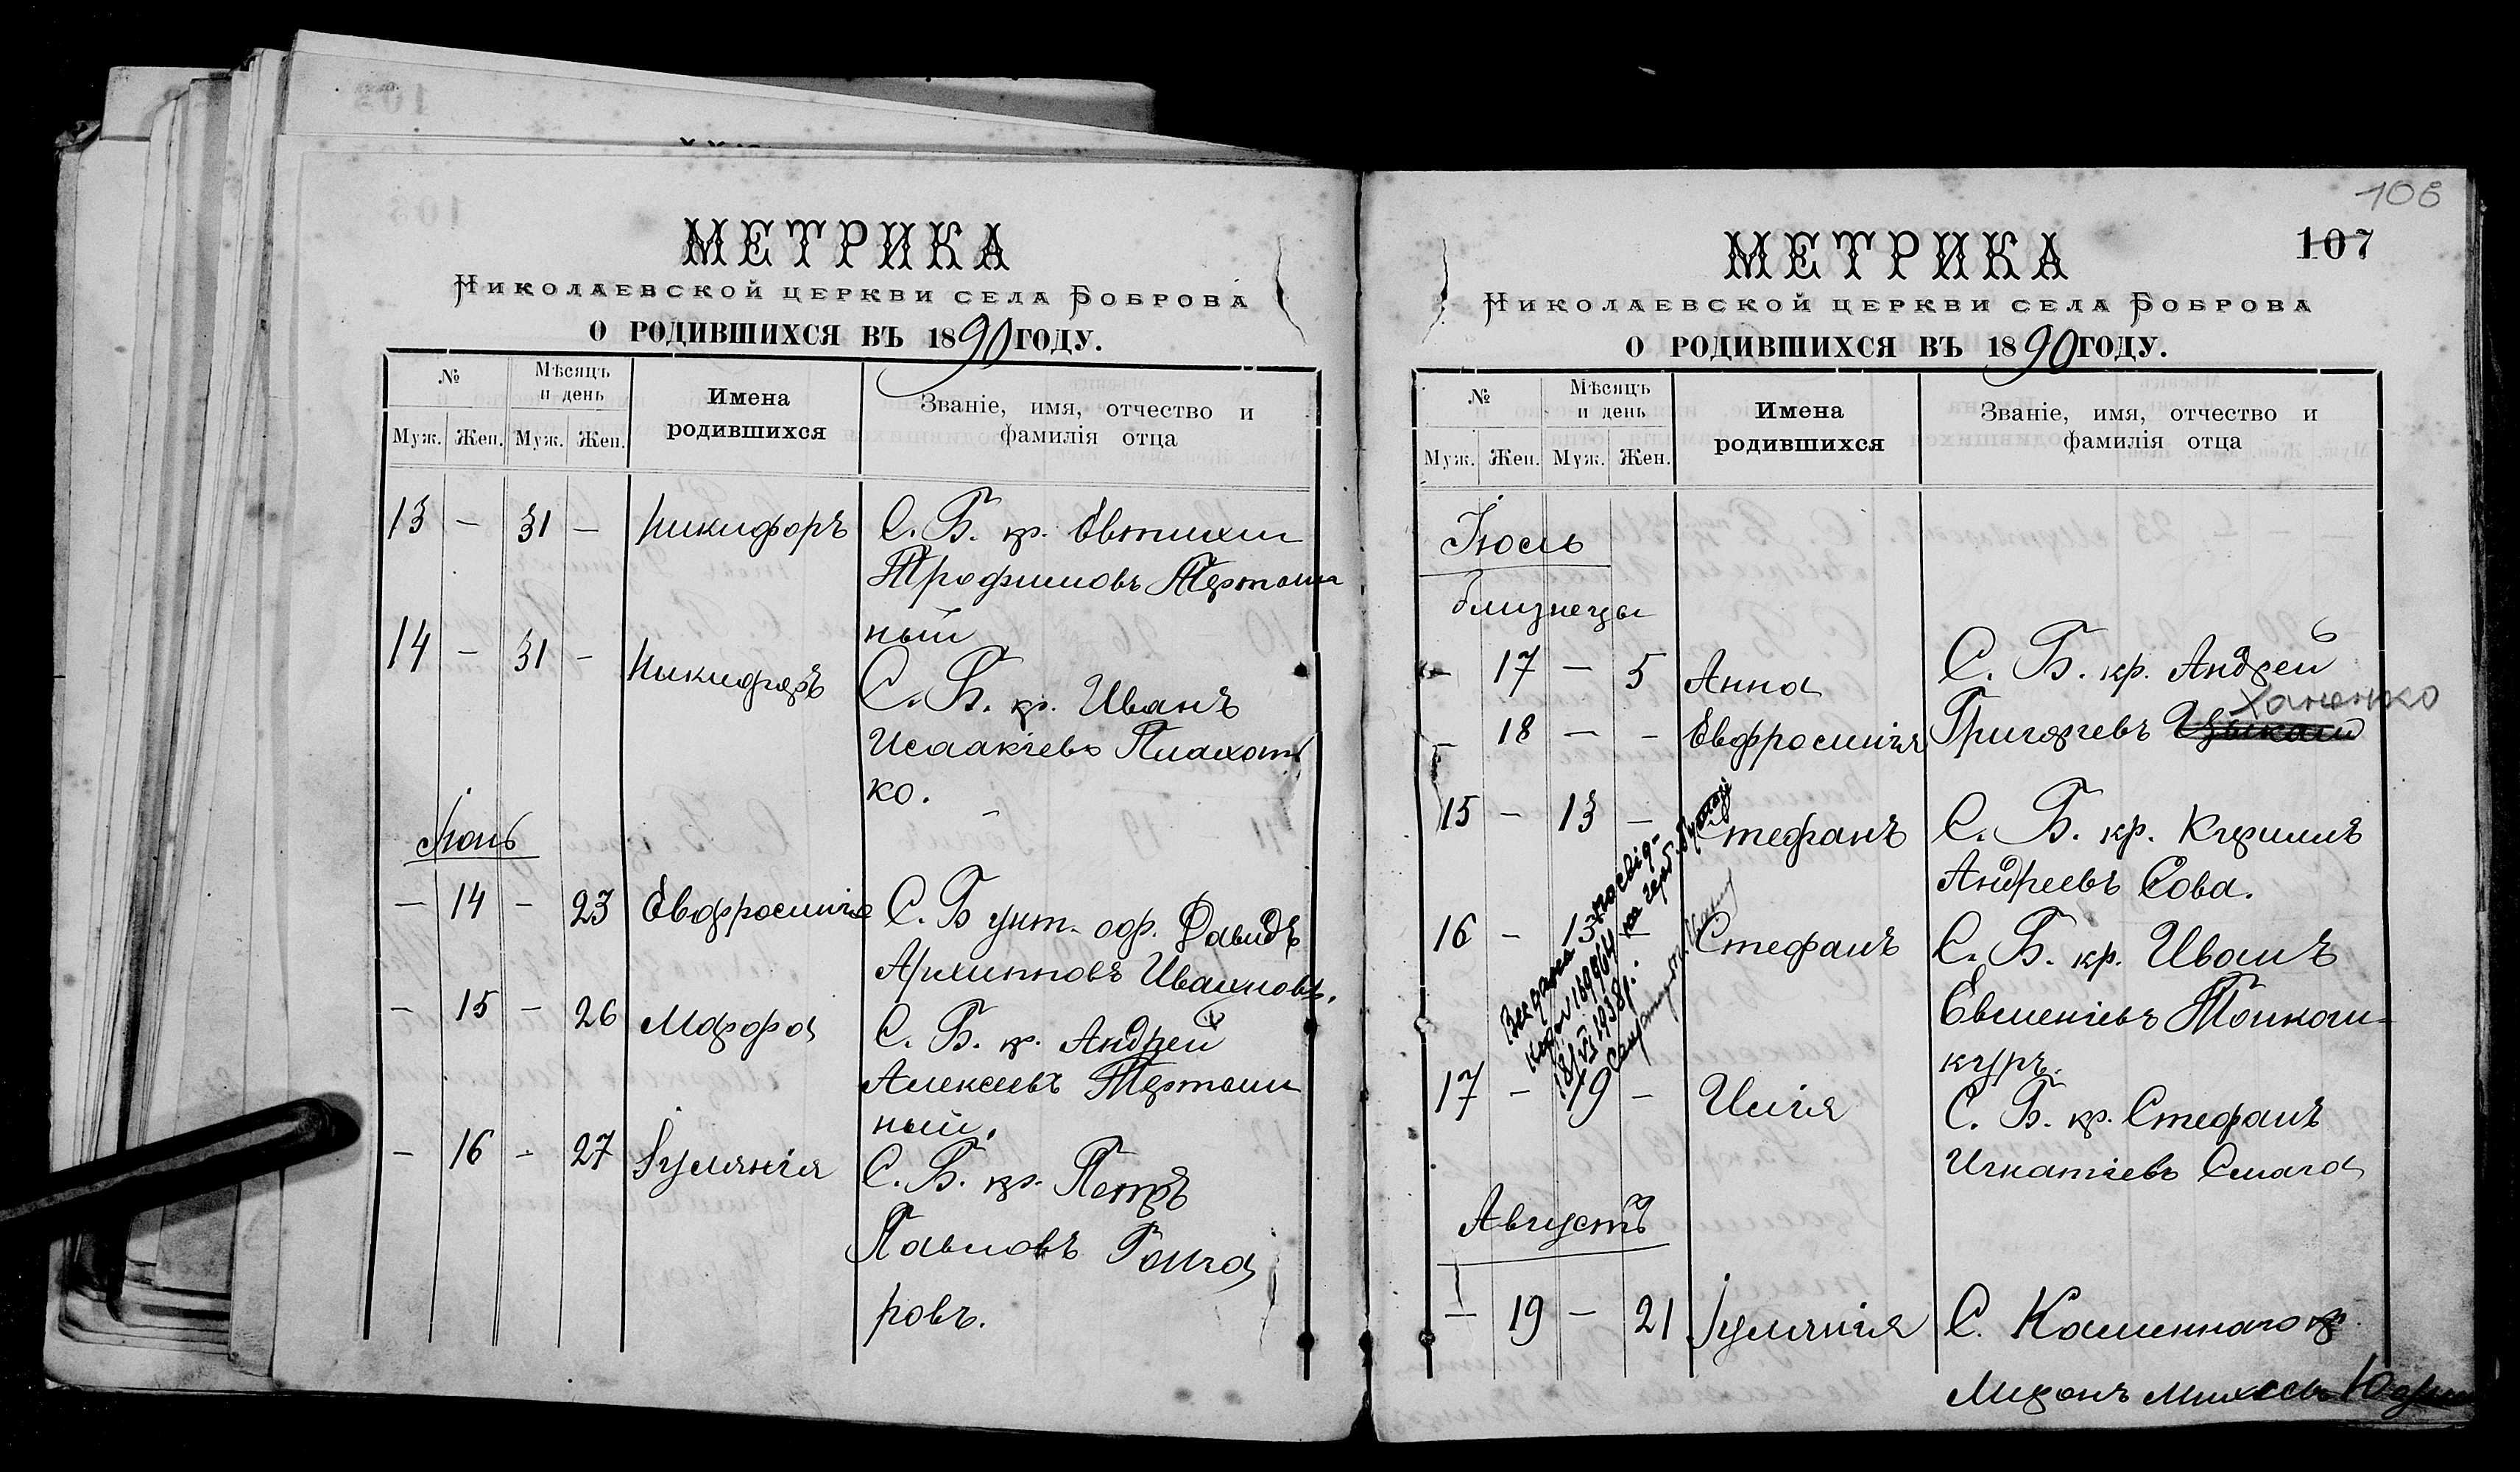 МЕТРИКА
Николаевской церкви села Боброва
О РОДИВШИХСЯ ВЪ 1890 ГОДУ.
№
Мѣсяцъ и день
Имена родившихся
Званіе, имя, отчество и фамилія отца
Муж. Жен. Муж. Жен.
13 — 31 — Никифоръ С. Б. кр. Евтихии
Трофимовъ Тертыш
ный
14 — 31 — Никифоръ
С. Б. кр. Иванъ
Исаакіевъ Плахоть
ко.
Іюнь
— 14 — 23 Евфросинія С. Б унт. оф. Давидъ
Архипповъ Ивановъ.
— 15 — 26 Марфа С. Б. кр. Андрей
Алексеевъ Тертыш
ный.
— 16 — 27 Іуліанія С. Б. кр. Петръ
Павловъ Гонча
ровъ.
108
107
МЕТРИКА
Николаевской церкви села Боброва
О РОДИВШИХСЯ ВЪ 1890 ГОДУ.
№
Мѣсяцъ и день
Имена родившихся
Званіе, имя, отчество и фамилія отца
Муж. Жен. Муж. Жен.
Іюль
близнецы
— 17 — 5 Анна С. Б. кр. Андрей
Ханенко
— 18 — — Евфросинія Григорьевъ
15 — 13 — Стефанъ С. Б. кр. Кирилъ
Андреевъ Сова.
16 — 13 — Стефанъ С. Б. кр. Иванъ
Евменіевъ Тонкош-
куръ.
17 — 19 — Илія С. Б. кр. Стефанъ
Игнатіевъ Смага
18/VI 1938 р.
Августъ
— 19 — 21 Іуліанія С. Каменнаго кр.
Миронъ Михеевъ